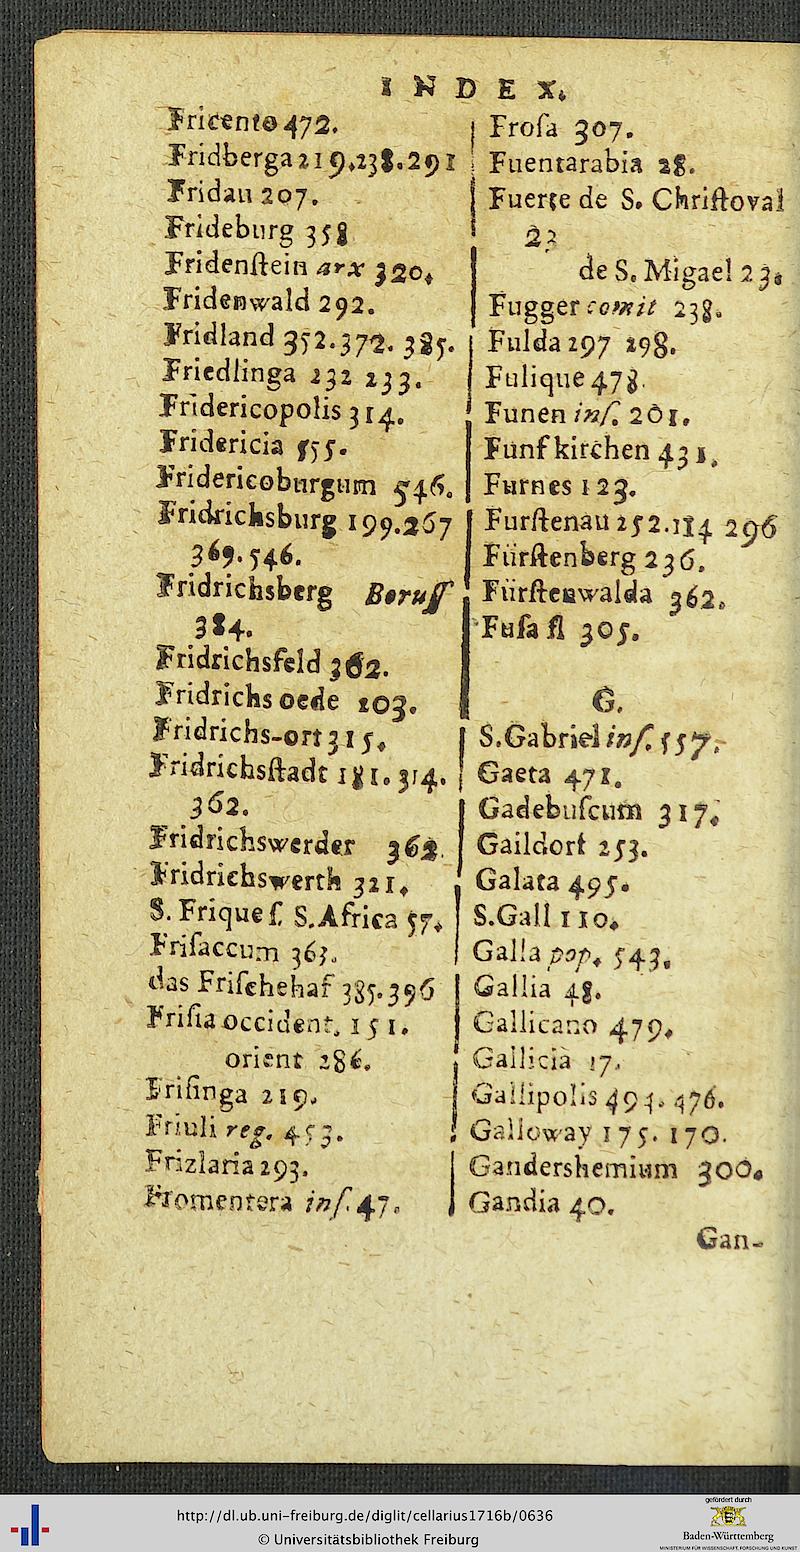 INDEX.
Fricento 472.
Fridberga 219.238.291
Fridau 207.
Frideburg 358
Fridenſtein arx 320.
Fridenwald 292.
Fridland 352.372. 385.
Friedlinga 232 233.
Fridericopolis 314.
Fridericia 555.
Fridericoburgum 546.
Fridrichsburg 199.267
369.546.
Fridrichsberg Boruſſ
384.
Fridrichsfeld 362.
Fridrichs oede 203.
Fridrichs-ort 315.
Fridrichsſtadt 181. 314.
362.
Fridrichswerder 362.
Fridrichswerth 321.
S. Frique ſ. S. Africa 57.
Friſaccum 363.
das Friſchehaf 385.396
Friſia occident. 151.
orient 286.
Friſinga 219.
Friuli reg. 453.
Frizlaria 293.
Fromentera inſ. 47.
Froſa 307.
Fuentarabia 28.
Fuerte de S. Chriſtoval
23
de S. Migael 23.
Fugger comit 238.
Fulda 297 298.
Fulique 478.
Funen inſ. 201.
Funfkirchen 431.
Furnes 123.
Furſtenau 252.114 296
Fürſtenberg 236.
Fürſtenwalda 362.
Fuſa fl 305.
G.
S. Gabriel inſ. 557.
Gaeta 471.
Gadebuſcum 317.
Gaildorf 253.
Galata 495.
S. Gall 110.
Galla pop. 543.
Gallia 48.
Gallicano 479.
Gallicia 17.
Gallipolis 494. 476.
Galloway 175. 170.
Gandershemium 300.
Gandia 40.
Gan-
http://dl.ub.uni-freiburg.de/diglit/cellarius1716b/0636
© Universitätsbibliothek Freiburg
gefördert durch
Baden-Württemberg
MINISTERIUM FÜR WISSENSCHAFT, FORSCHUNG UND KUNST